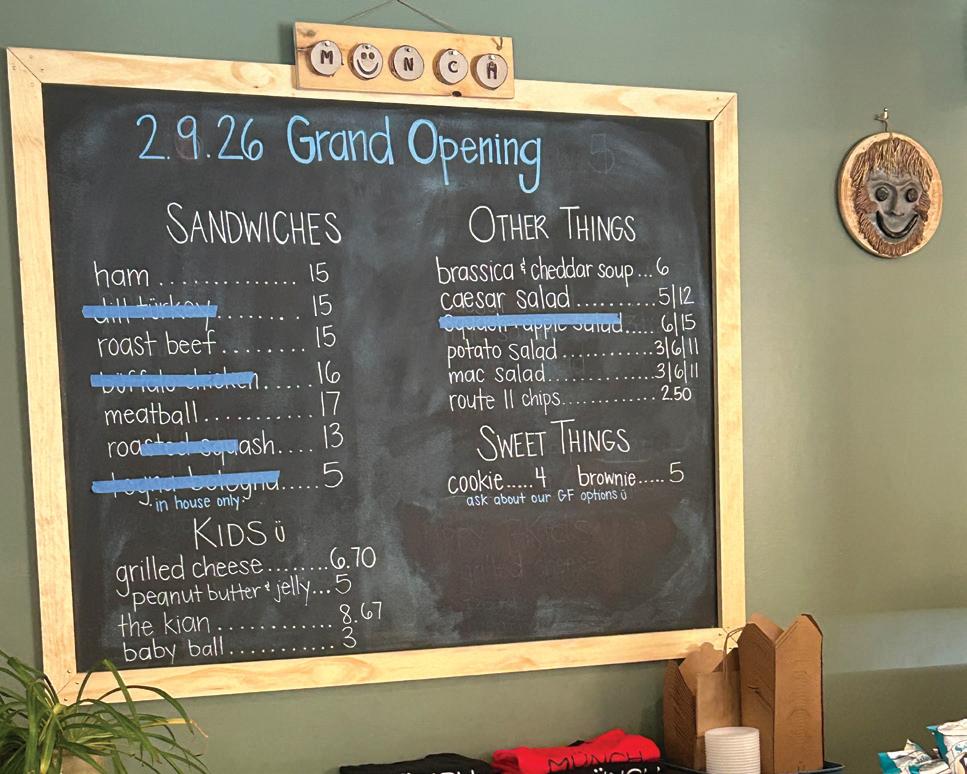 M Ü N C H
2.9.26 Grand Opening
SANDWICHES
ham .............. 15
dill türkey ........ 15
roast beef ........ 15
büffalo chicken ...... 16
meatball ........... 17
roasted squash.... 13
bologna ..... 5
in house only
KIDS ü
grilled cheese ........ 6.70
peanut butter & jelly... 5
the kian ............ 8.67
baby ball ........... 3
OTHER THINGS
brassica & cheddar soup ... 6
caesar salad .......... 5|12
squash + apple salad .... 6|15
potato salad ............ 3|6|11
mac salad ............. 3|6|11
route 11 chips ............ 2.50
SWEET THINGS
cookie ..... 4 brownie ..... 5
ask about our GF options ü
MÜNCH